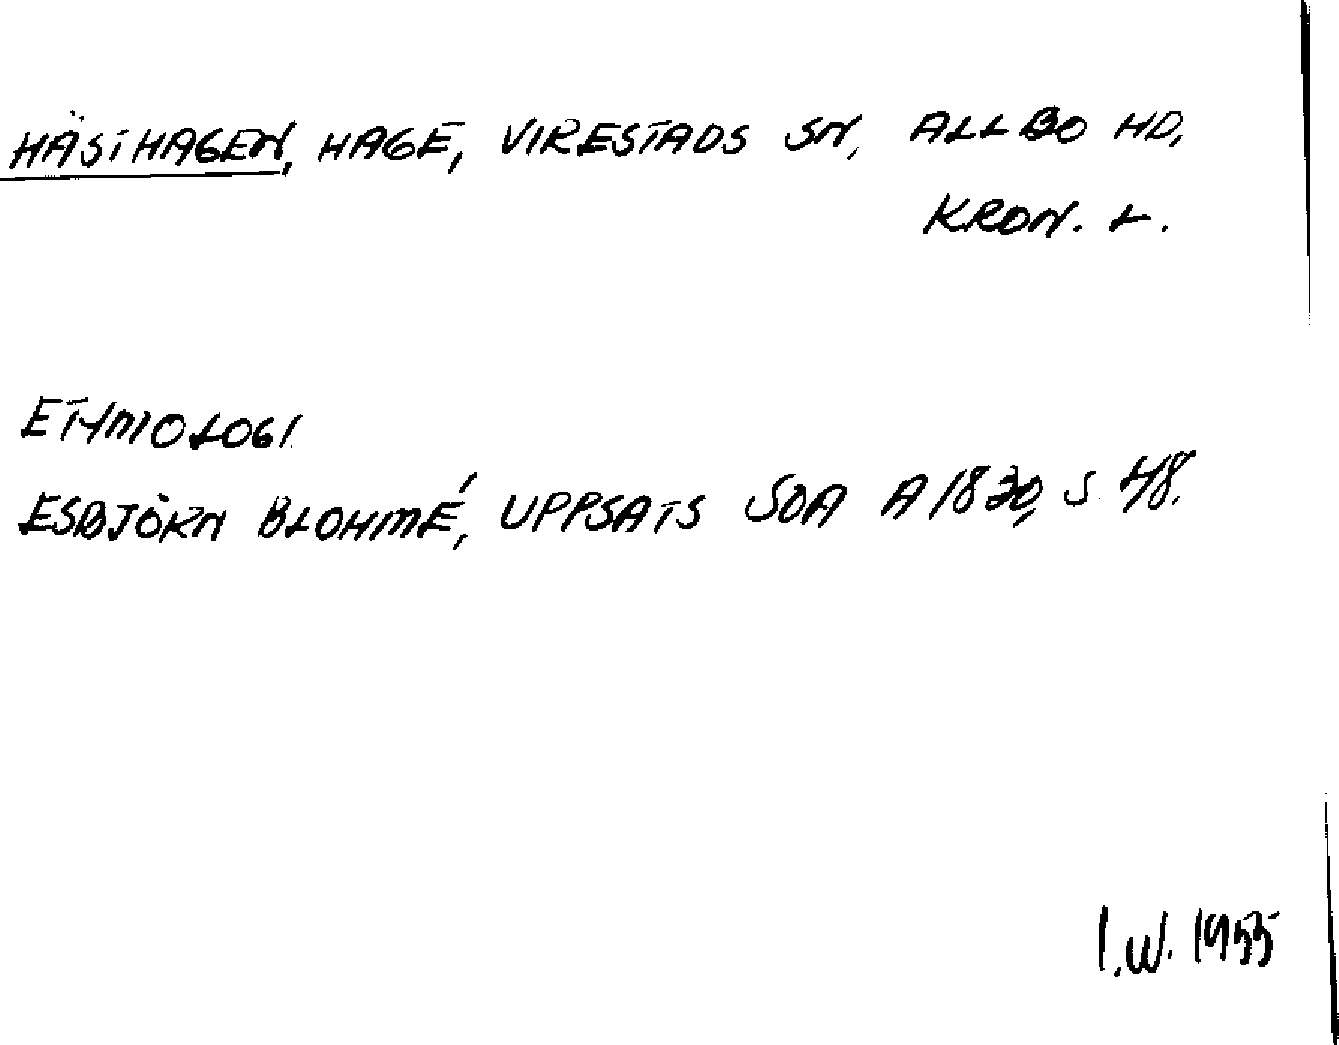 HÄSTHAGEN, HAGE, VIRESTADS SN, ALLBO HD,
KRON. L.
ETYMOLOGI
ESBJÖRN BLOHMÉ, UPPSATS SOA A 1830, S. 48.
I.W. 1955